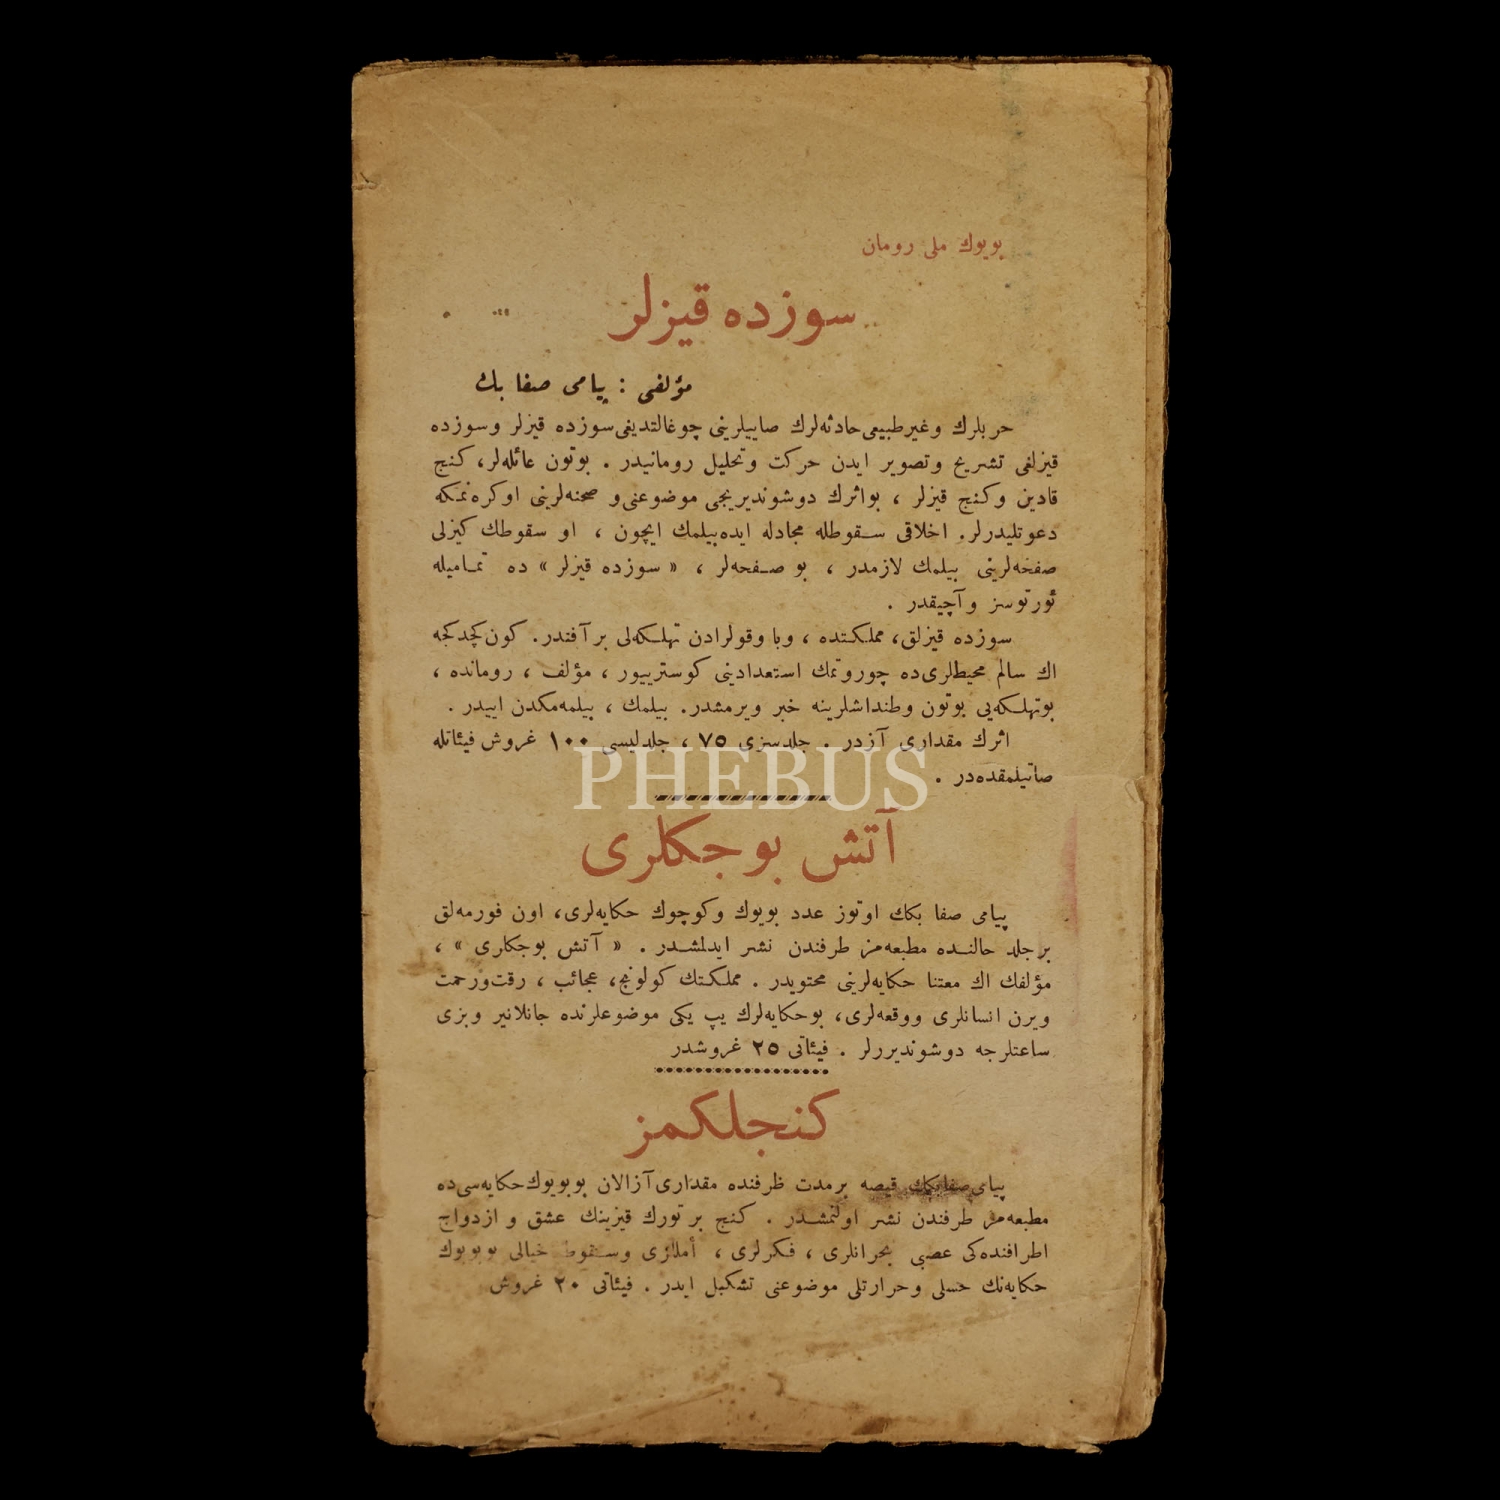 بویوك ملی رومان
سوزده قیزلر
مؤلفی : پیامی صفا بك
حربلرك وغیرطبیعی حادثه‌لرك صاییلرینی چوغالتدیغی سوزده قیزلر وسوزده
قیزلغی تشریح وتصویر ایدن حركت وتحلیل رومانیدر . بوتون عائله‌لر، كنج
قادین وكنج قیزلر ، بواثرك دوشوندیریجی موضوعنی و صحنه‌لرینی اوكره‌نمكه
دعوتلیدرلر. اخلاقی سقوطله مجادله ایده‌بیلمك ایچون ، او سقوطك كیزلی
صفحه‌لرینی بیلمك لازمدر ، بو صفحه‌لر ، « سوزده قیزلر » ده تمامیله
ئورتوسز وآچیقدر .
سوزده قیزلق، مملكتده ، وبا وقولرادن تهلكه‌لی بر آفتدر. كون كچدكجه
اك سالم محیطلری‌ده چوروتمك استعدادینی كوسترییور ، مؤلف ، رومانده ،
بوتهلكه‌یی بوتون وطنداشلرینه خبر ویرمشدر. بیلمك ، بیلمه‌مكدن اییدر .
اثرك مقداری آزدر . جلدسزی ٧٥ ، جلدلیسی ١٠٠ غروش فیئاتله
صاتیلمقده‌در .
PHEBUS
آتش بوجكلری
پیامی صفا بكك اوتوز عدد بویوك وكوچوك حكایه‌لری، اون فورمه‌لق
بر جلد حالنده مطبعه‌مز طرفندن نشر ایدلمشدر . « آتش بوجكلری » ،
مؤلفك اك معتنا حكایه‌لرینی محتویدر . مملكتك كولونج، عجائب ، رقت‌ورحمت
ویرن انسانلری ووقعه‌لری، بوحكایه‌لرك یپ یكی موضوعلرنده جانلانیر وبزی
ساعتلرجه دوشوندیررلر . فیئاتی ٢٥ غروشدر
كنجلكمز
پیامی صفا بكك قیصه بر مدت ظرفنده مقداری آزالان بوبویوك حكایه‌سی‌ده
مطبعه‌مز طرفندن نشر اولنمشدر . كنج بر تورك قیزینك عشق و ازدواج
اطرافنده‌كی عصبی بحرانلری ، فكرلری ، أمللری وسقوط خیالی بوبویوك
حكایه‌نك حسلی وحرارتلی موضوعنی تشكیل ایدر . فیئاتی ٢٠ غروش